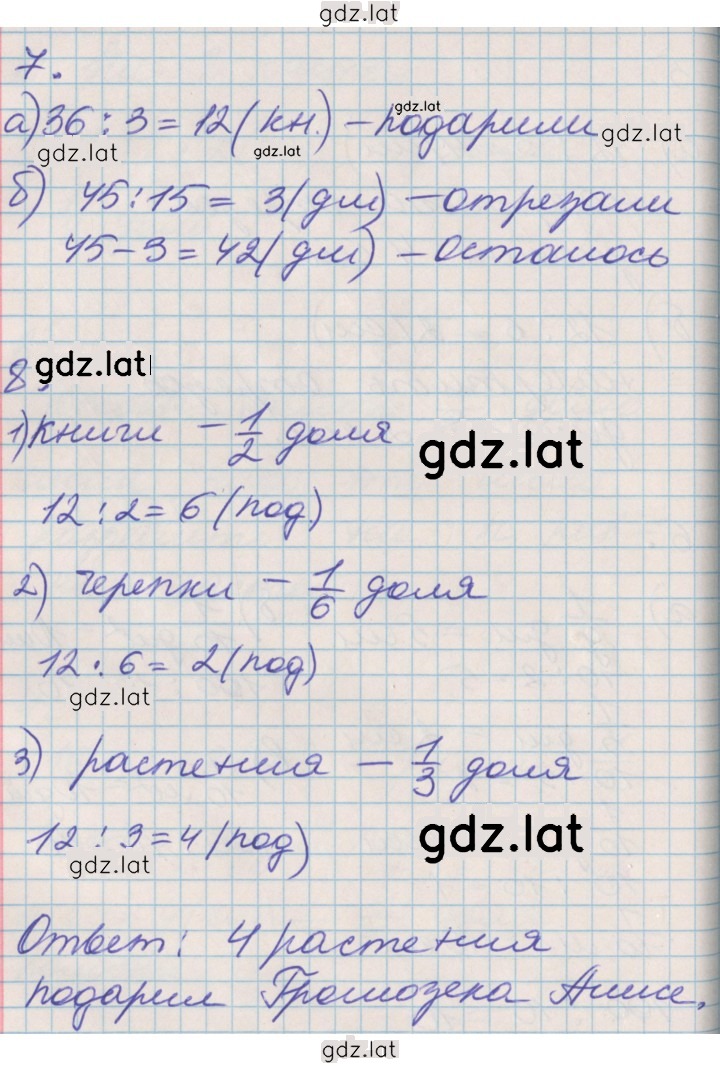 gdz.lat
7.
а) 36 : 3 = 12 (кн.) – подарили
gdz.lat
gdz.lat
gdz.lat
gdz.lat
б) 45 : 15 = 3 (дм) – отрезали
45 – 3 = 42 (дм) – осталось
8. gdz.lat
1) книги – 1/2 доля
gdz.lat
12 : 2 = 6 (под)
2) черепки – 1/6 доля
12 : 6 = 2 (под)
gdz.lat
3) растения – 1/3 доля
12 : 3 = 4 (под)
gdz.lat
gdz.lat
Ответ: 4 растения
подарил Громозека Алисе.
gdz.lat